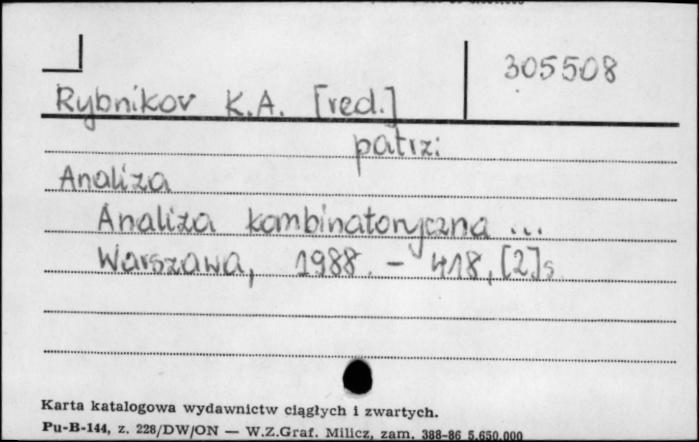 305508
Rybnikov K.A. [red.]
patrz:
Analiza
Analiza kombinatoryczna ...
Warszawa, 1988. - 418, [2]s.
Karta katalogowa wydawnictw ciągłych i zwartych.
Pu-B-144, z. 228/DW/ON — W.Z.Graf. Milicz, zam. 388-86 5.650.000